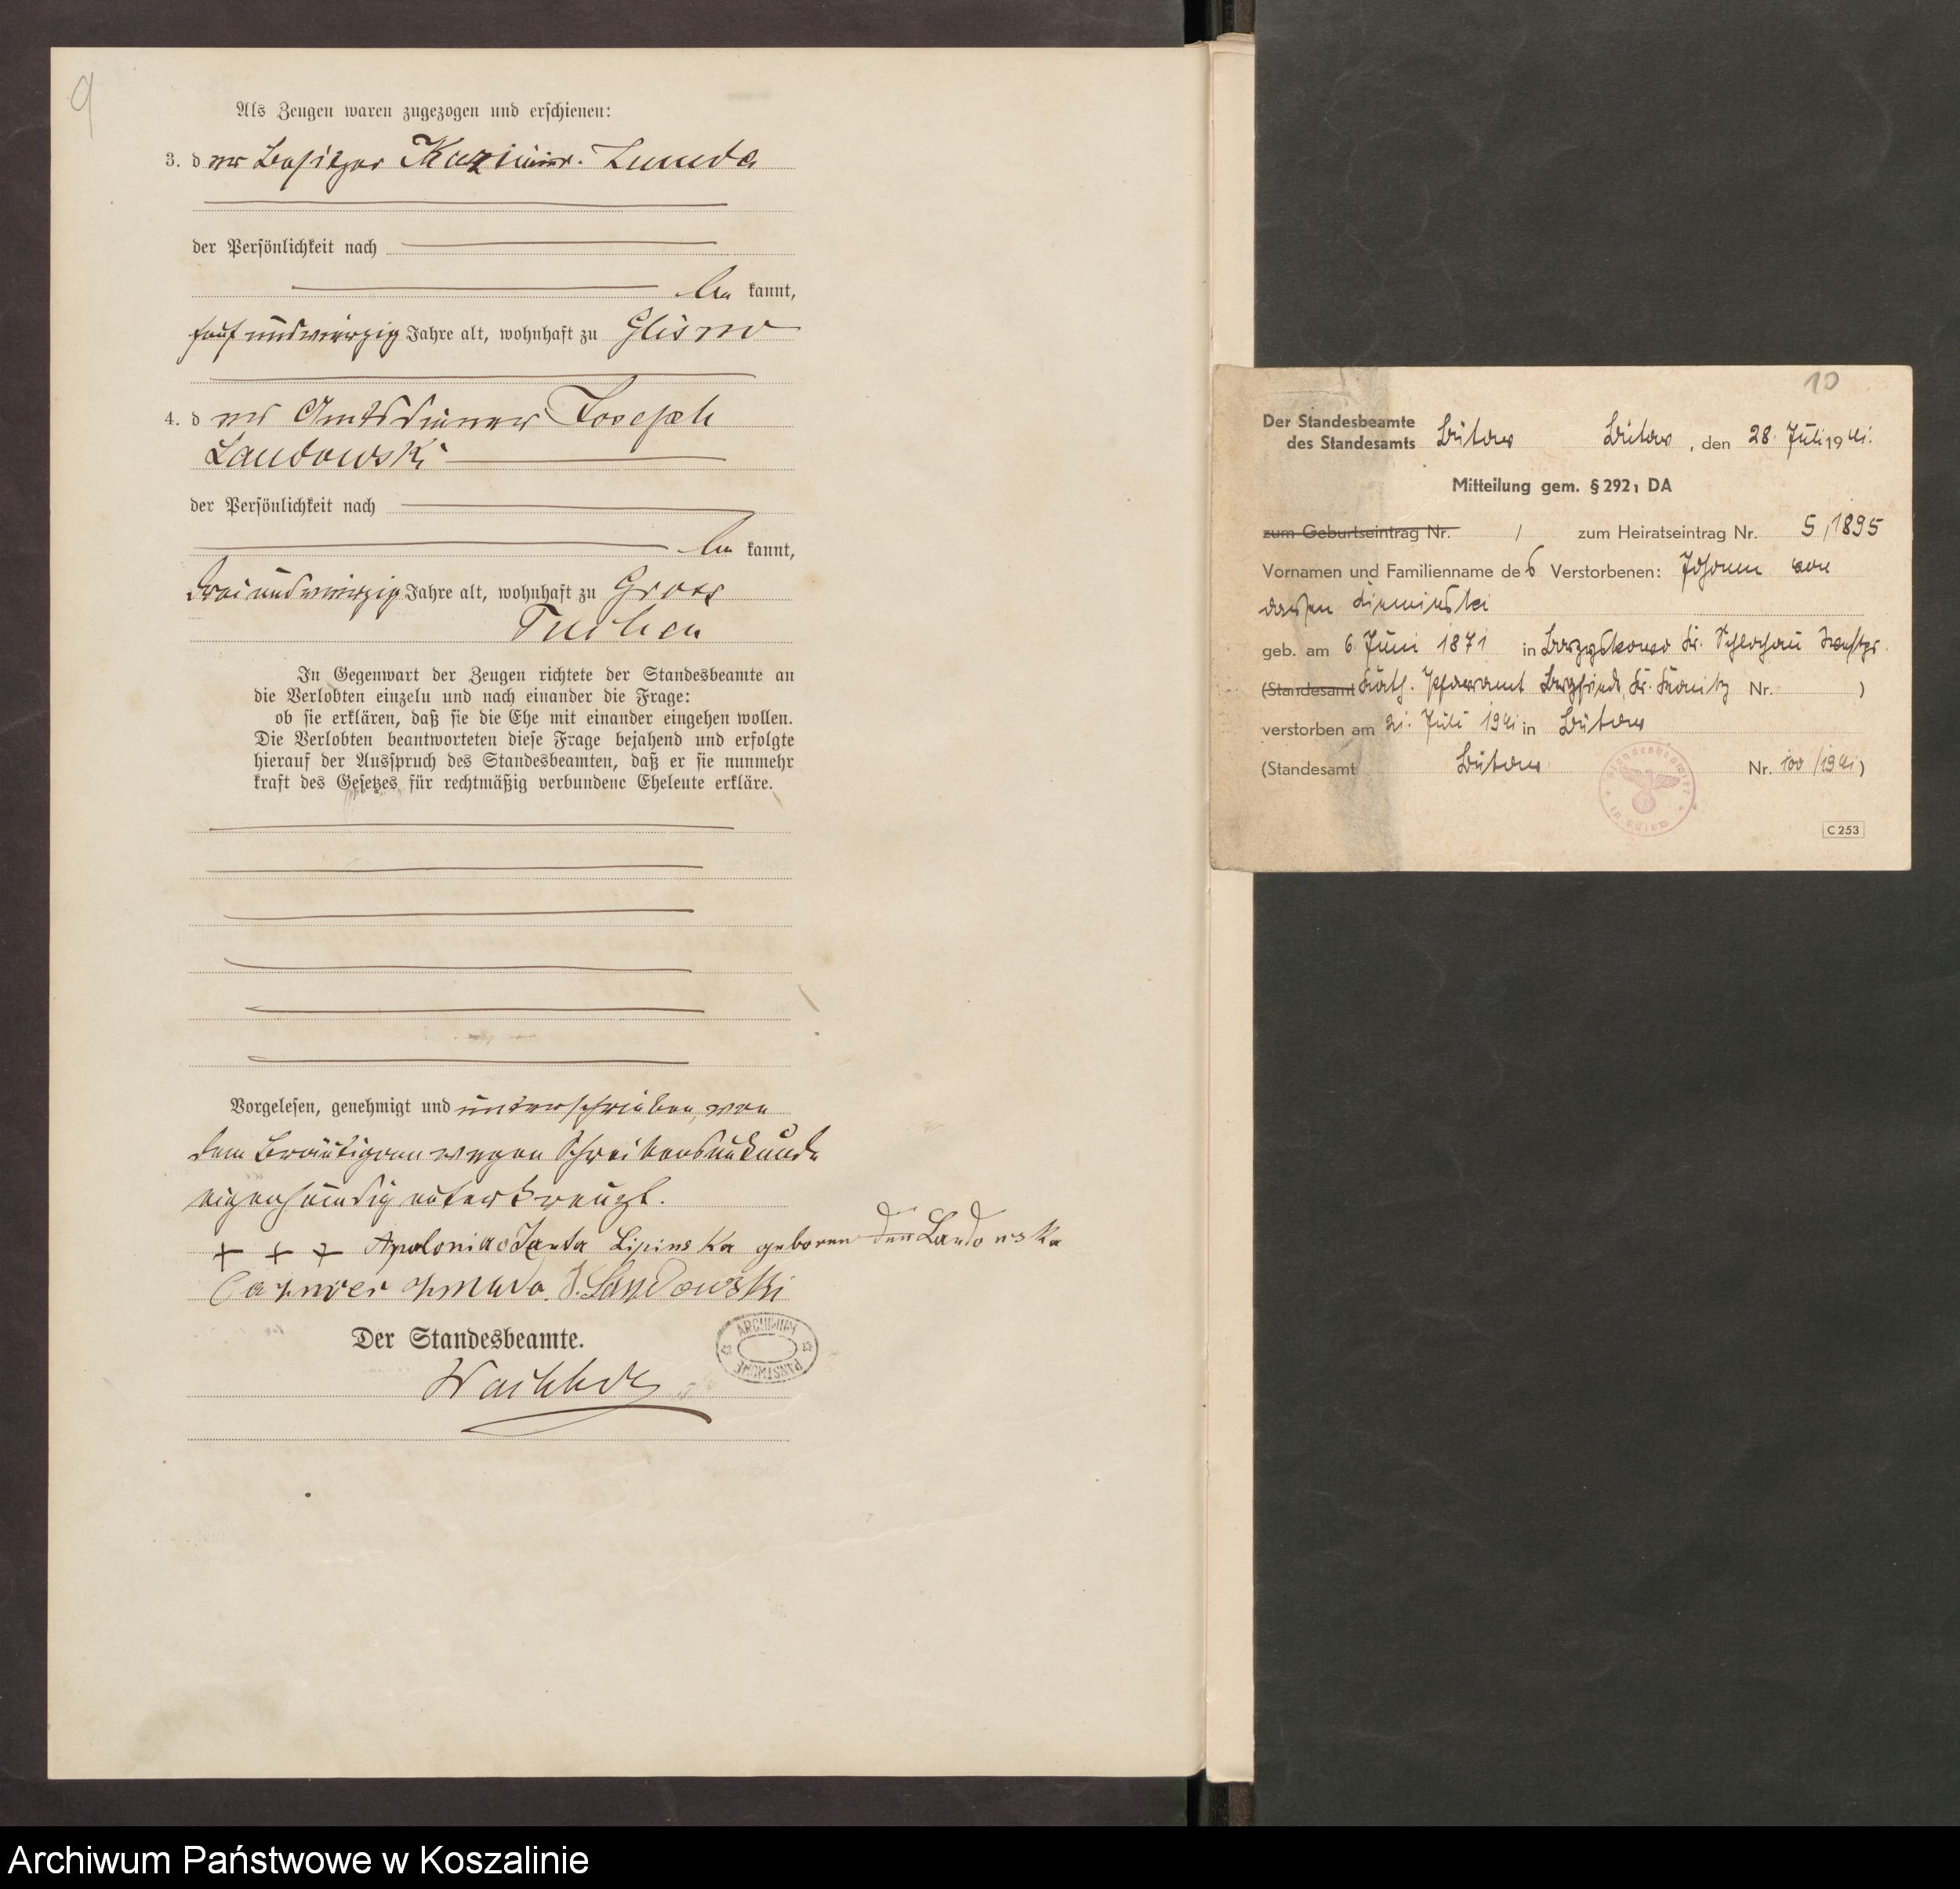 9
Als Zeugen waren zugezogen und erschienen:
3. der Besitzer Kazimir Zmuda
der Persönlichkeit nach
be kannt,
fünfundvierzig Jahre alt, wohnhaft zu Glisno
4. der Amtsdiener Joseph
Landowski
der Persönlichkeit nach
be kannt,
dreiundvierzig Jahre alt, wohnhaft zu Gross
Tuchen
In Gegenwart der Zeugen richtete der Standesbeamte an
die Verlobten einzeln und nach einander die Frage:
ob sie erklären, daß sie die Ehe mit einander eingehen wollen.
Die Verlobten beantworteten diese Frage bejahend und erfolgte
hierauf der Ausspruch des Standesbeamten, daß er sie nunmehr
kraft des Gesetzes für rechtmäßig verbundene Eheleute erkläre.
Vorgelesen, genehmigt und unterschrieben, von
dem Bräutigam wegen Schreibensunkunde
eigenhändig unterkreuzt.
+ + + Apolonia Janta Lipinska geboren Landowska
J. Landowski
Der Standesbeamte.
ARCHIWUM PAŃSTWOWE
10
Der Standesbeamte
des Standesamts Bütow Bütow, den 28. Juli 1941.
Mitteilung gem. § 292, DA
zum Geburtseintrag Nr. / zum Heiratseintrag Nr. 5/1895
Vornamen und Familienname des Verstorbenen: Johann von
geb. am 6. Juni 1871 in Borzyskowo Kr. Schlochau Westpr.
(Standesamt Kath. Pfarramt Kr. Konitz Nr. )
verstorben am 21. Juli 1941 in Bütow
(Standesamt Bütow Nr. 100/1941)
C 253
Archiwum Państwowe w Koszalinie